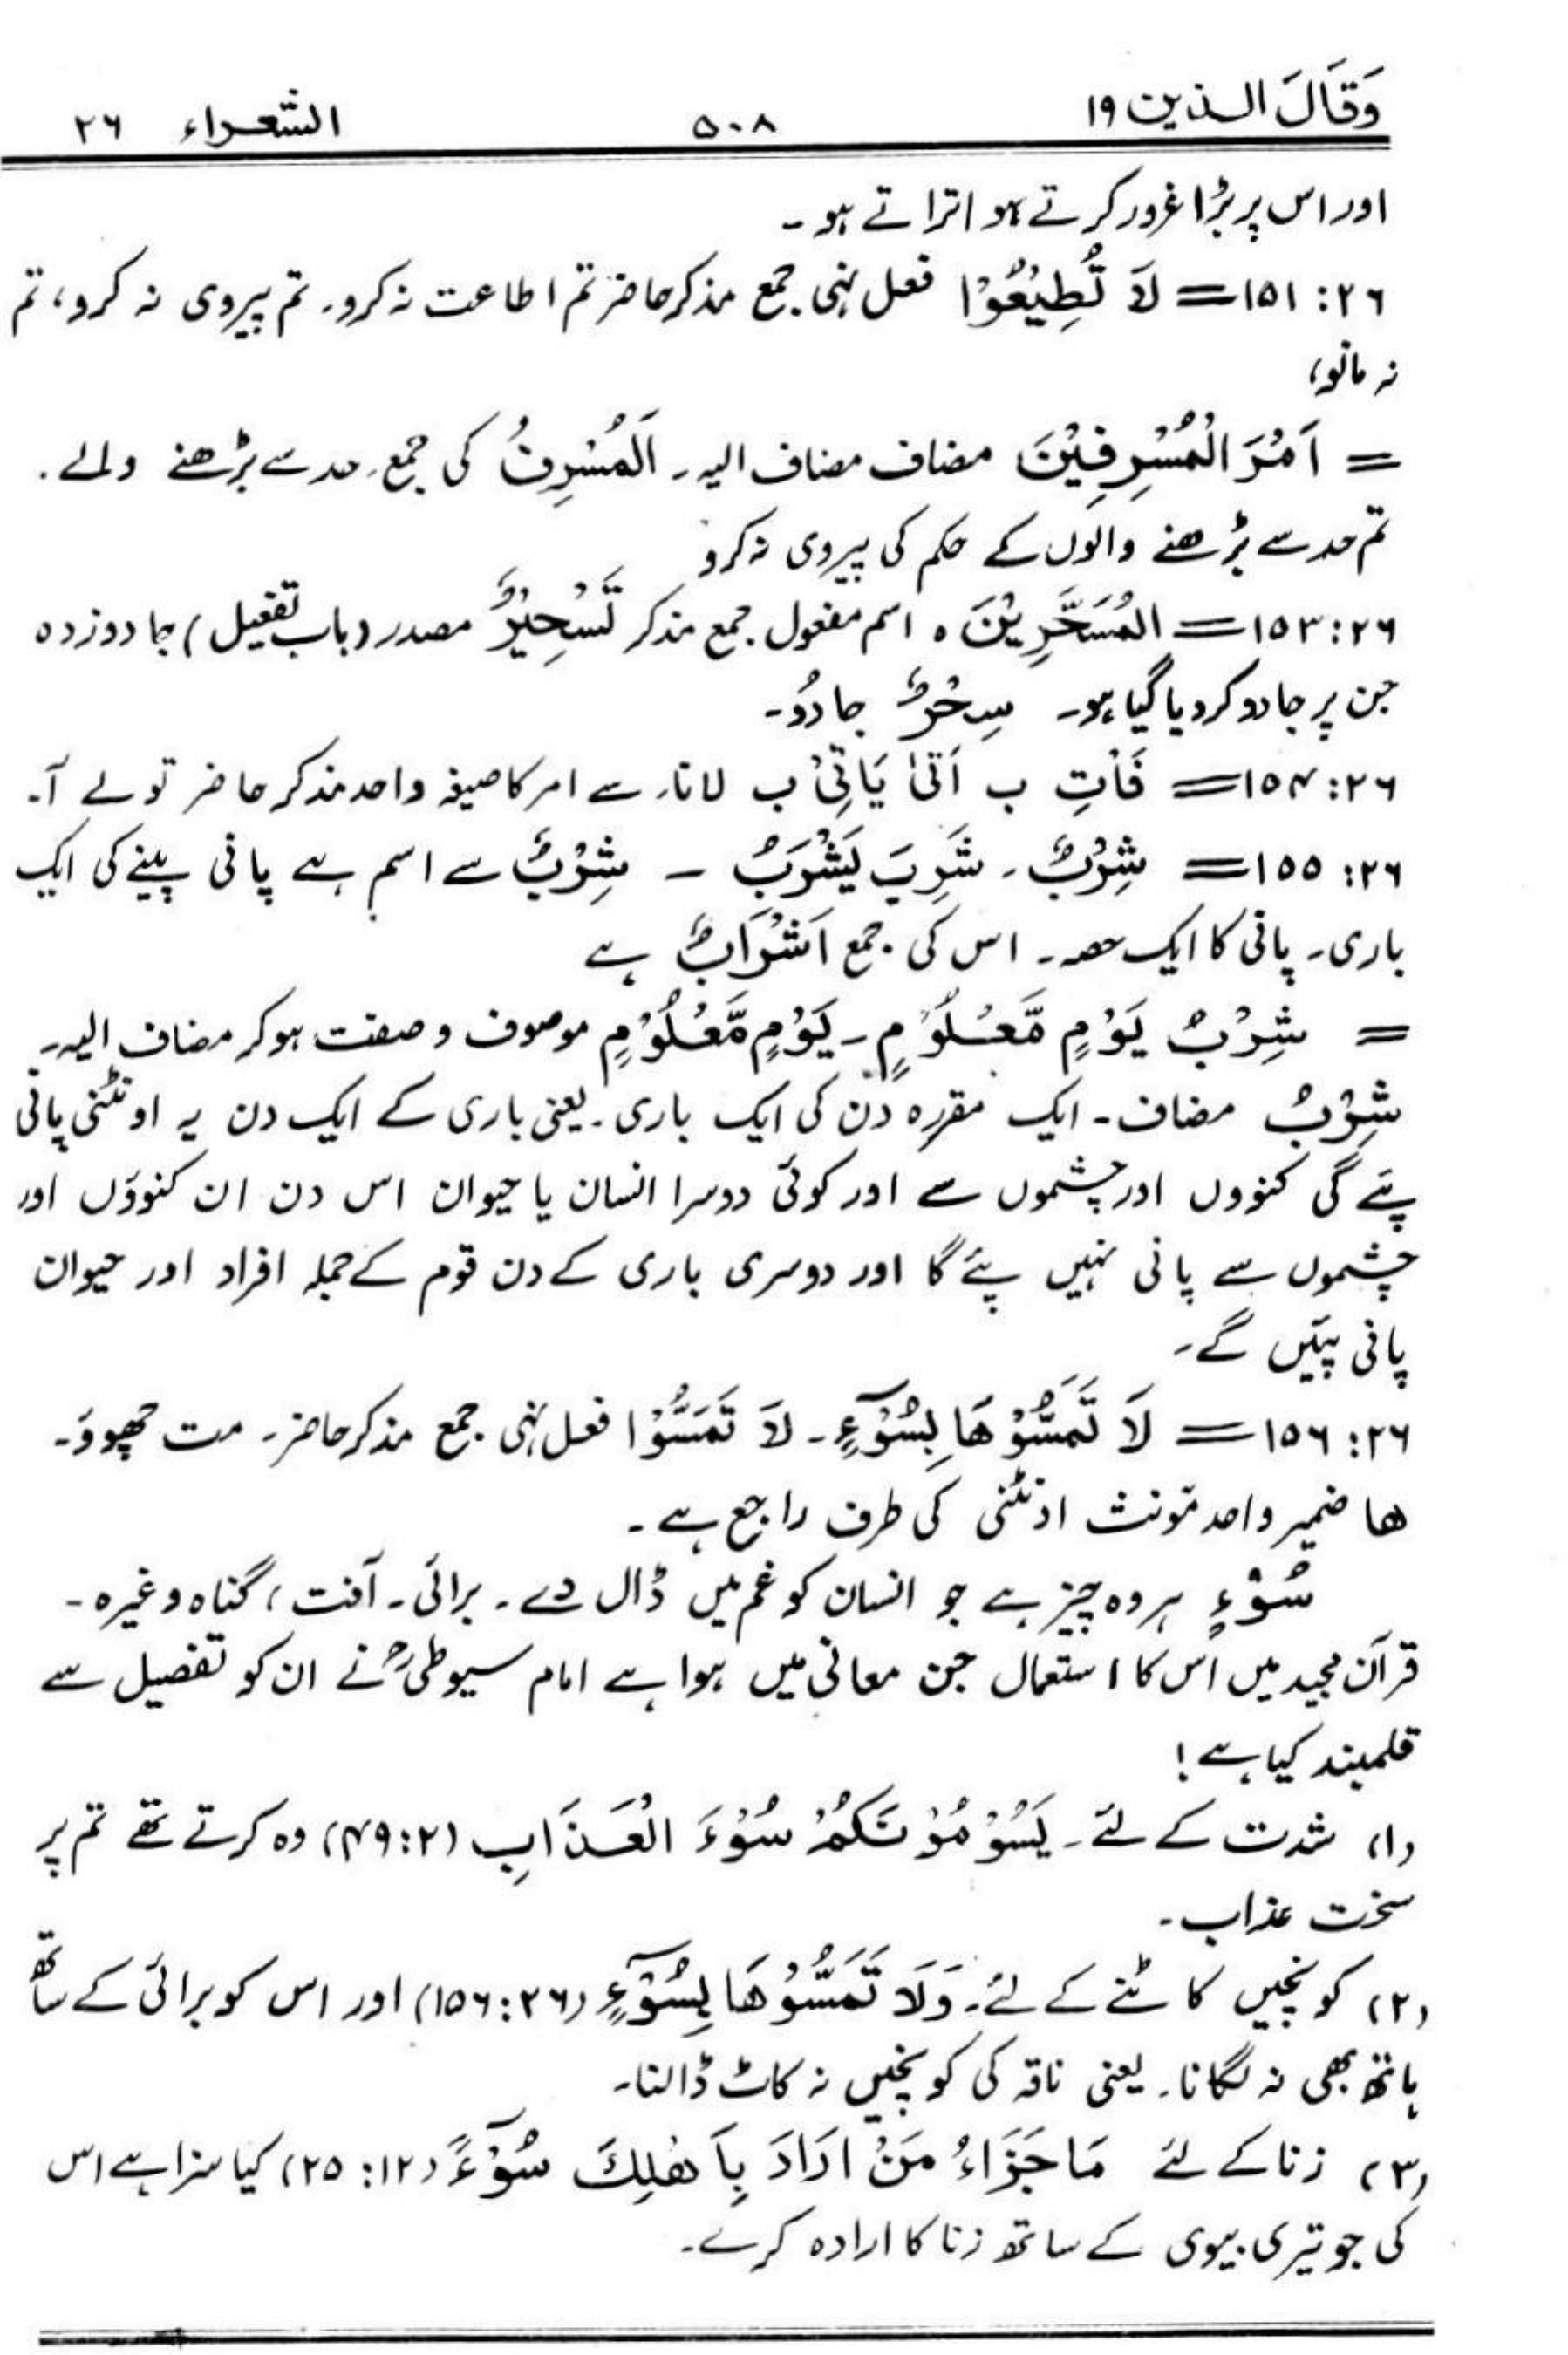 وَقَالَ الذین ۱۹ ۵۰۸ الشعراء ۲۶
اور اس پر بڑا غرور کرتے ہو اتراتے ہو۔
۲۶: ۱۵۱= لَا تُطِیْعُوْا فعل نہی جمع مذکر حاضر تم اطاعت نہ کرو۔ تم پیروی نہ کرو، تم
نہ مانو،
= اَمْرَ الْمُسْرِفِیْنَ مضاف مضاف الیہ۔ اَلْمُسْرِفُ کی جمع۔ حد سے بڑھنے والے۔
تم حد سے بڑھنے والوں کے حکم کی پیروی نہ کرو
۲۶: ۱۵۳= الْمُسَحَّرِیْنَ ہ اسم مفعول جمع مذکر تَسْحِیْرٌ مصدر (باب تفعیل) جادو زدہ
جن پر جادو کر دیا گیا ہو۔ سِحْرٌ جادُو۔
۲۶: ۱۵۴= فَاْتِ ب اَتٰی یَاْتِیْ ب لانا۔ سے امر کا صیغہ واحد مذکر حاضر تو لے آ۔
۲۶: ۱۵۵= شِرْبٌ۔ شَرِبَ یَشْرَبُ ۔ شِرْبٌ سے اسم ہے پانی پینے کی ایک
باری۔ پانی کا ایک حصہ۔ اس کی جمع اَشْرَابٌ ہے
= شِرْبُ یَوْمٍ مَّعْلُوْمٍ۔ یَوْمٍ مَّعْلُوْمٍ موصوف و صفت ہو کر مضاف الیہ۔
شِرْبُ مضاف۔ ایک مقررہ دن کی ایک باری۔ یعنی باری کے ایک دن یہ اونٹنی پانی
پئے گی کنووں اور چشموں سے اور کوئی دوسرا انسان یا حیوان اس دن ان کنوؤں اور
چشموں سے پانی نہیں پئے گا اور دوسری باری کے دن قوم کے جملہ افراد اور حیوان
پانی پئیں گے۔
۲۶: ۱۵۶= لَا تَمَسُّوْھَا بِسُوْٓءٍ۔ لَا تَمَسُّوْا فعل نہی جمع مذکر حاضر۔ مت چھوؤ۔
ھا ضمیر واحد مؤنث اونٹنی کی طرف راجع ہے۔
سُوْءٍ ہر وہ چیز ہے جو انسان کو غم میں ڈال دے۔ برائی۔ آفت، گناہ وغیرہ۔
قرآن مجید میں اس کا استعمال جن معانی میں ہوا ہے امام سیوطیؒ نے ان کو تفصیل سے
قلمبند کیا ہے!
(۱) شدت کے لئے۔ یَسُوْمُوْنَکُمْ سُوْءَ الْعَذَابِ (۲: ۴۹) وہ کرتے تھے تم پر
سخت عذاب۔
(۲) کونچیں کاٹنے کے لئے۔ وَلَا تَمَسُّوْھَا بِسُوْٓءٍ (۲۶: ۱۵۶) اور اس کو برائی کے ساتھ
ہاتھ بھی نہ لگانا۔ یعنی ناقہ کی کونچیں نہ کاٹ ڈالنا۔
(۳) زنا کے لئے مَا جَزَاءُ مَنْ اَرَادَ بِاَھْلِکَ سُوْٓءًا (۱۲: ۲۵) کیا سزا ہے اس
کی جو تیری بیوی کے ساتھ زنا کا ارادہ کرے۔